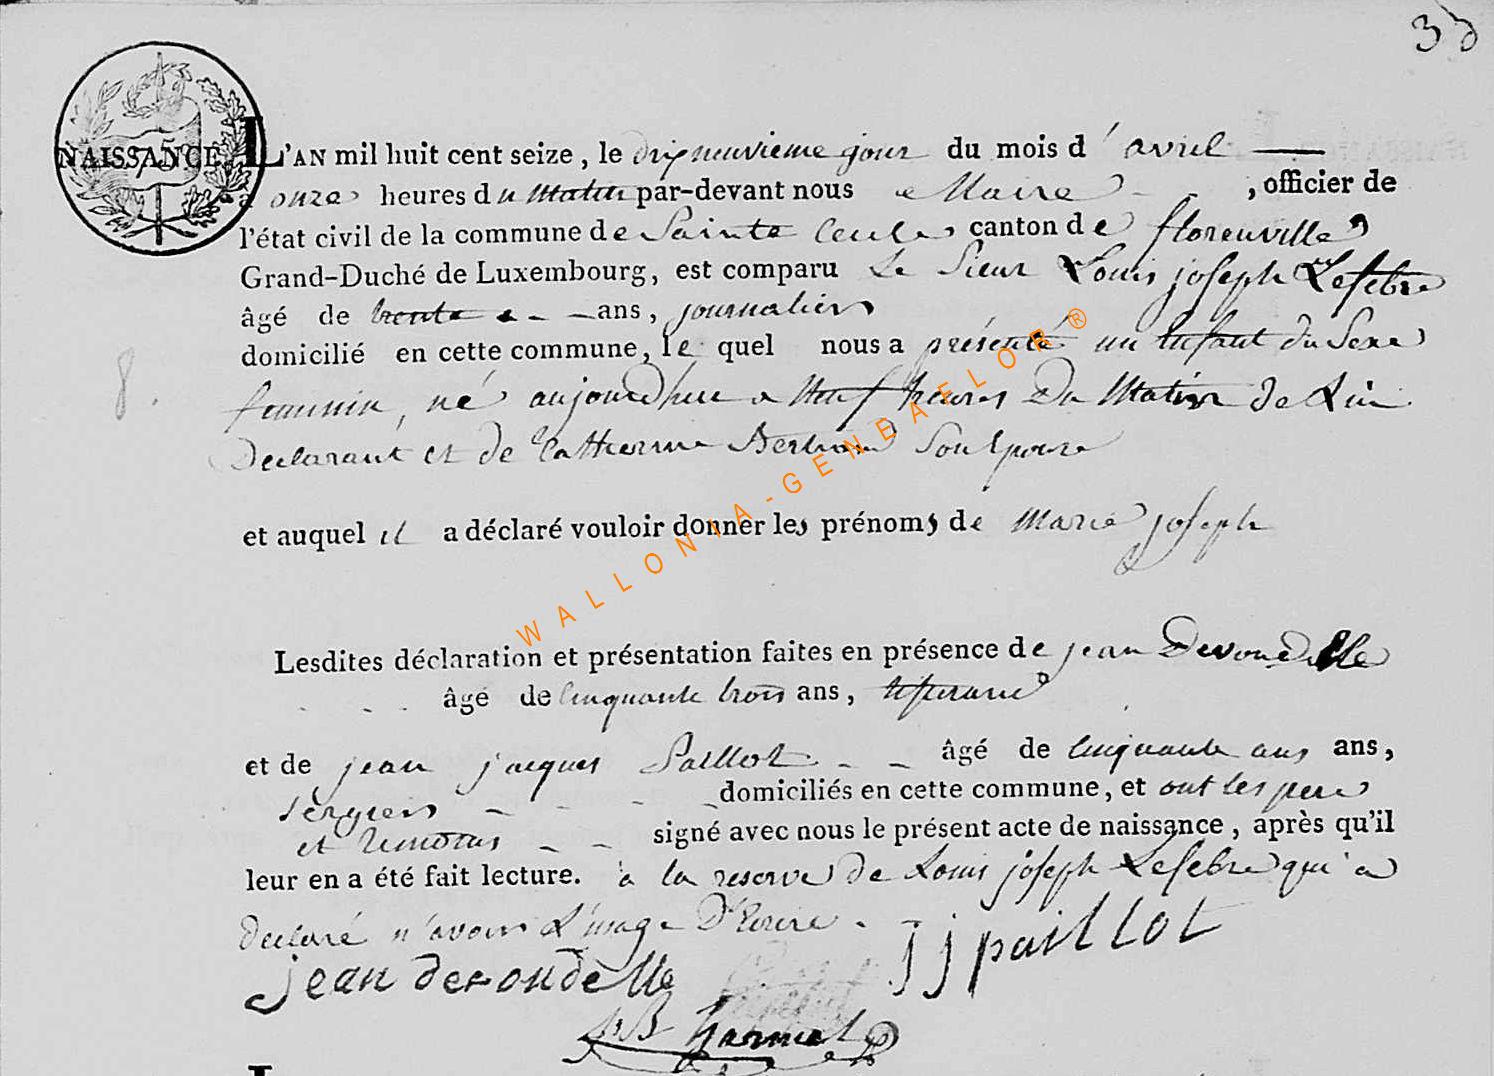 35
NAISSANCE. L'AN mil huit cent seize, le dixneuvieme jour du mois d'avril
à onze heures du Matin par-devant nous Maire, officier de
l'état civil de la commune de Sainte Cecile canton de florenville
Grand-Duché de Luxembourg, est comparu Le Sieur Louis joseph Lefebre
âgé de trente ans, journalier
domicilié en cette commune, le quel nous a présenté un Enfant du Sexe
8.
feminin, né aujourdhui a Neuf heures Du Matin De Lui
Declarant et de Catherine Son Epouse
et auquel il a déclaré vouloir donner les prénoms de Marie joseph
Lesdites déclaration et présentation faites en présence de jean Derondelle
âgé de Cinquante trois ans, tisserand
et de jean jacques Paillot âgé de Cinquante ans ans,
Sergier domiciliés en cette commune, et ont les pere
et temoins signé avec nous le présent acte de naissance, après qu'il
leur en a été fait lecture. à la reserve de Louis joseph Lefebre qui a
declaré n'avoir L'usage D'Ecrire.
jean derondelle jjpaillot
WALLONIA-GENEAFLOR®